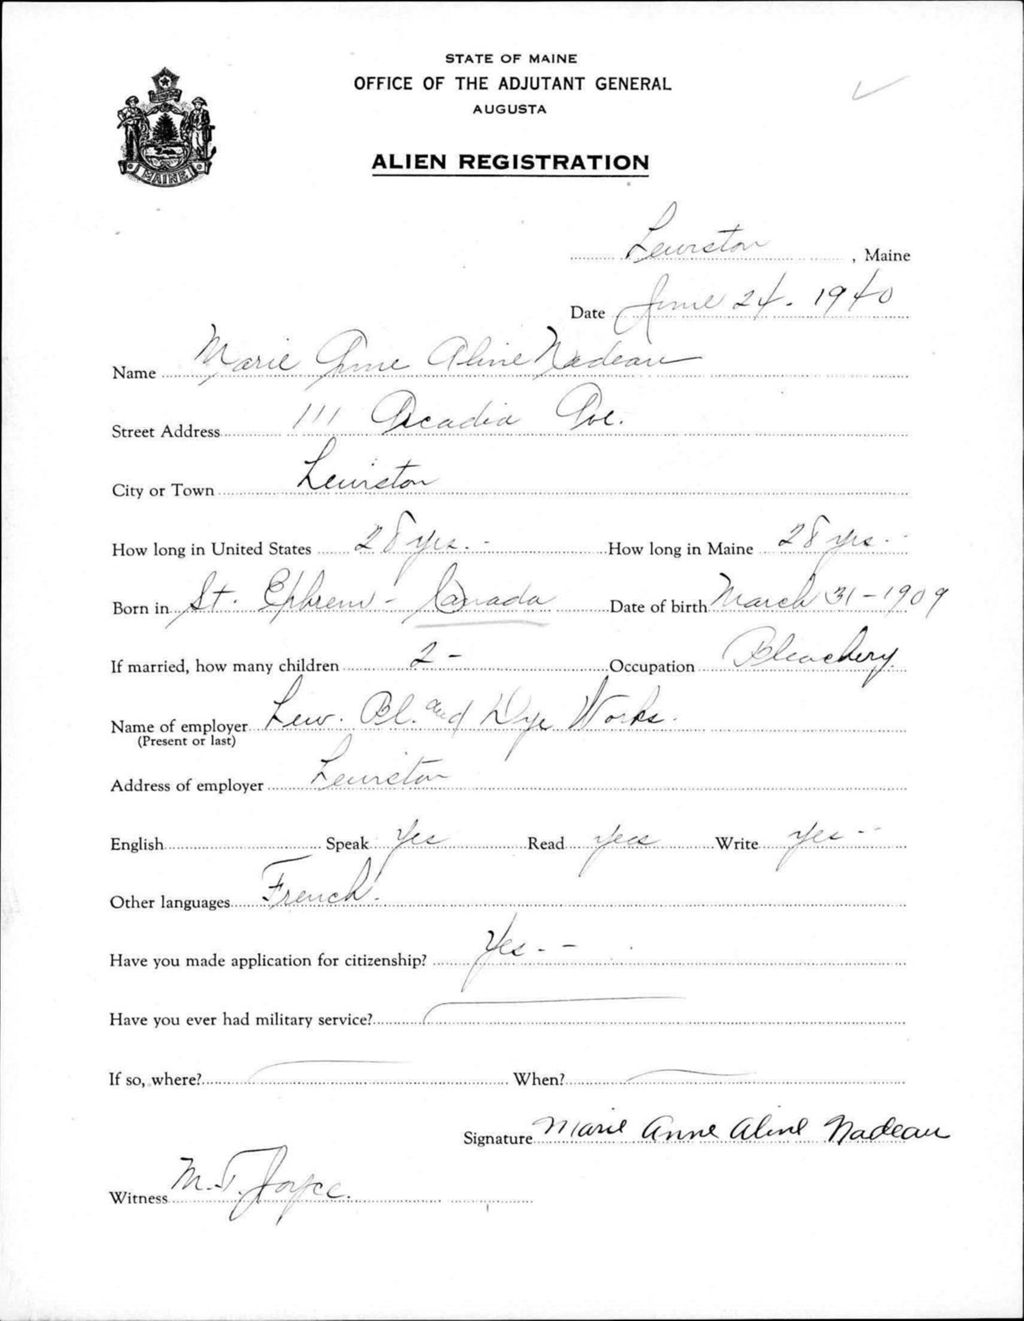 STATE OF MAINE
OFFICE OF THE ADJUTANT GENERAL
AUGUSTA
ALIEN REGISTRATION
MAINE
Lewiston, Maine
Date June 24 - 1940
Name Marie Anne Aline Nadeau
Street Address 111 Arcadia Ave.
City or Town Lewiston
How long in United States 28 yrs. - How long in Maine 28 yrs. -
Born in St. Ephrem - Canada Date of birth March 31 - 1909
If married, how many children 2 - Occupation Bleachery
Name of employer Lew. Bl. and Dye Works.
(Present or last)
Address of employer Lewiston
English Speak Yes Read yes Write yes -
Other languages French.
Have you made application for citizenship? Yes - -
Have you ever had military service?
If so, where? When?
Signature Marie Anne Aline Nadeau
Witness M. T. Joyce.